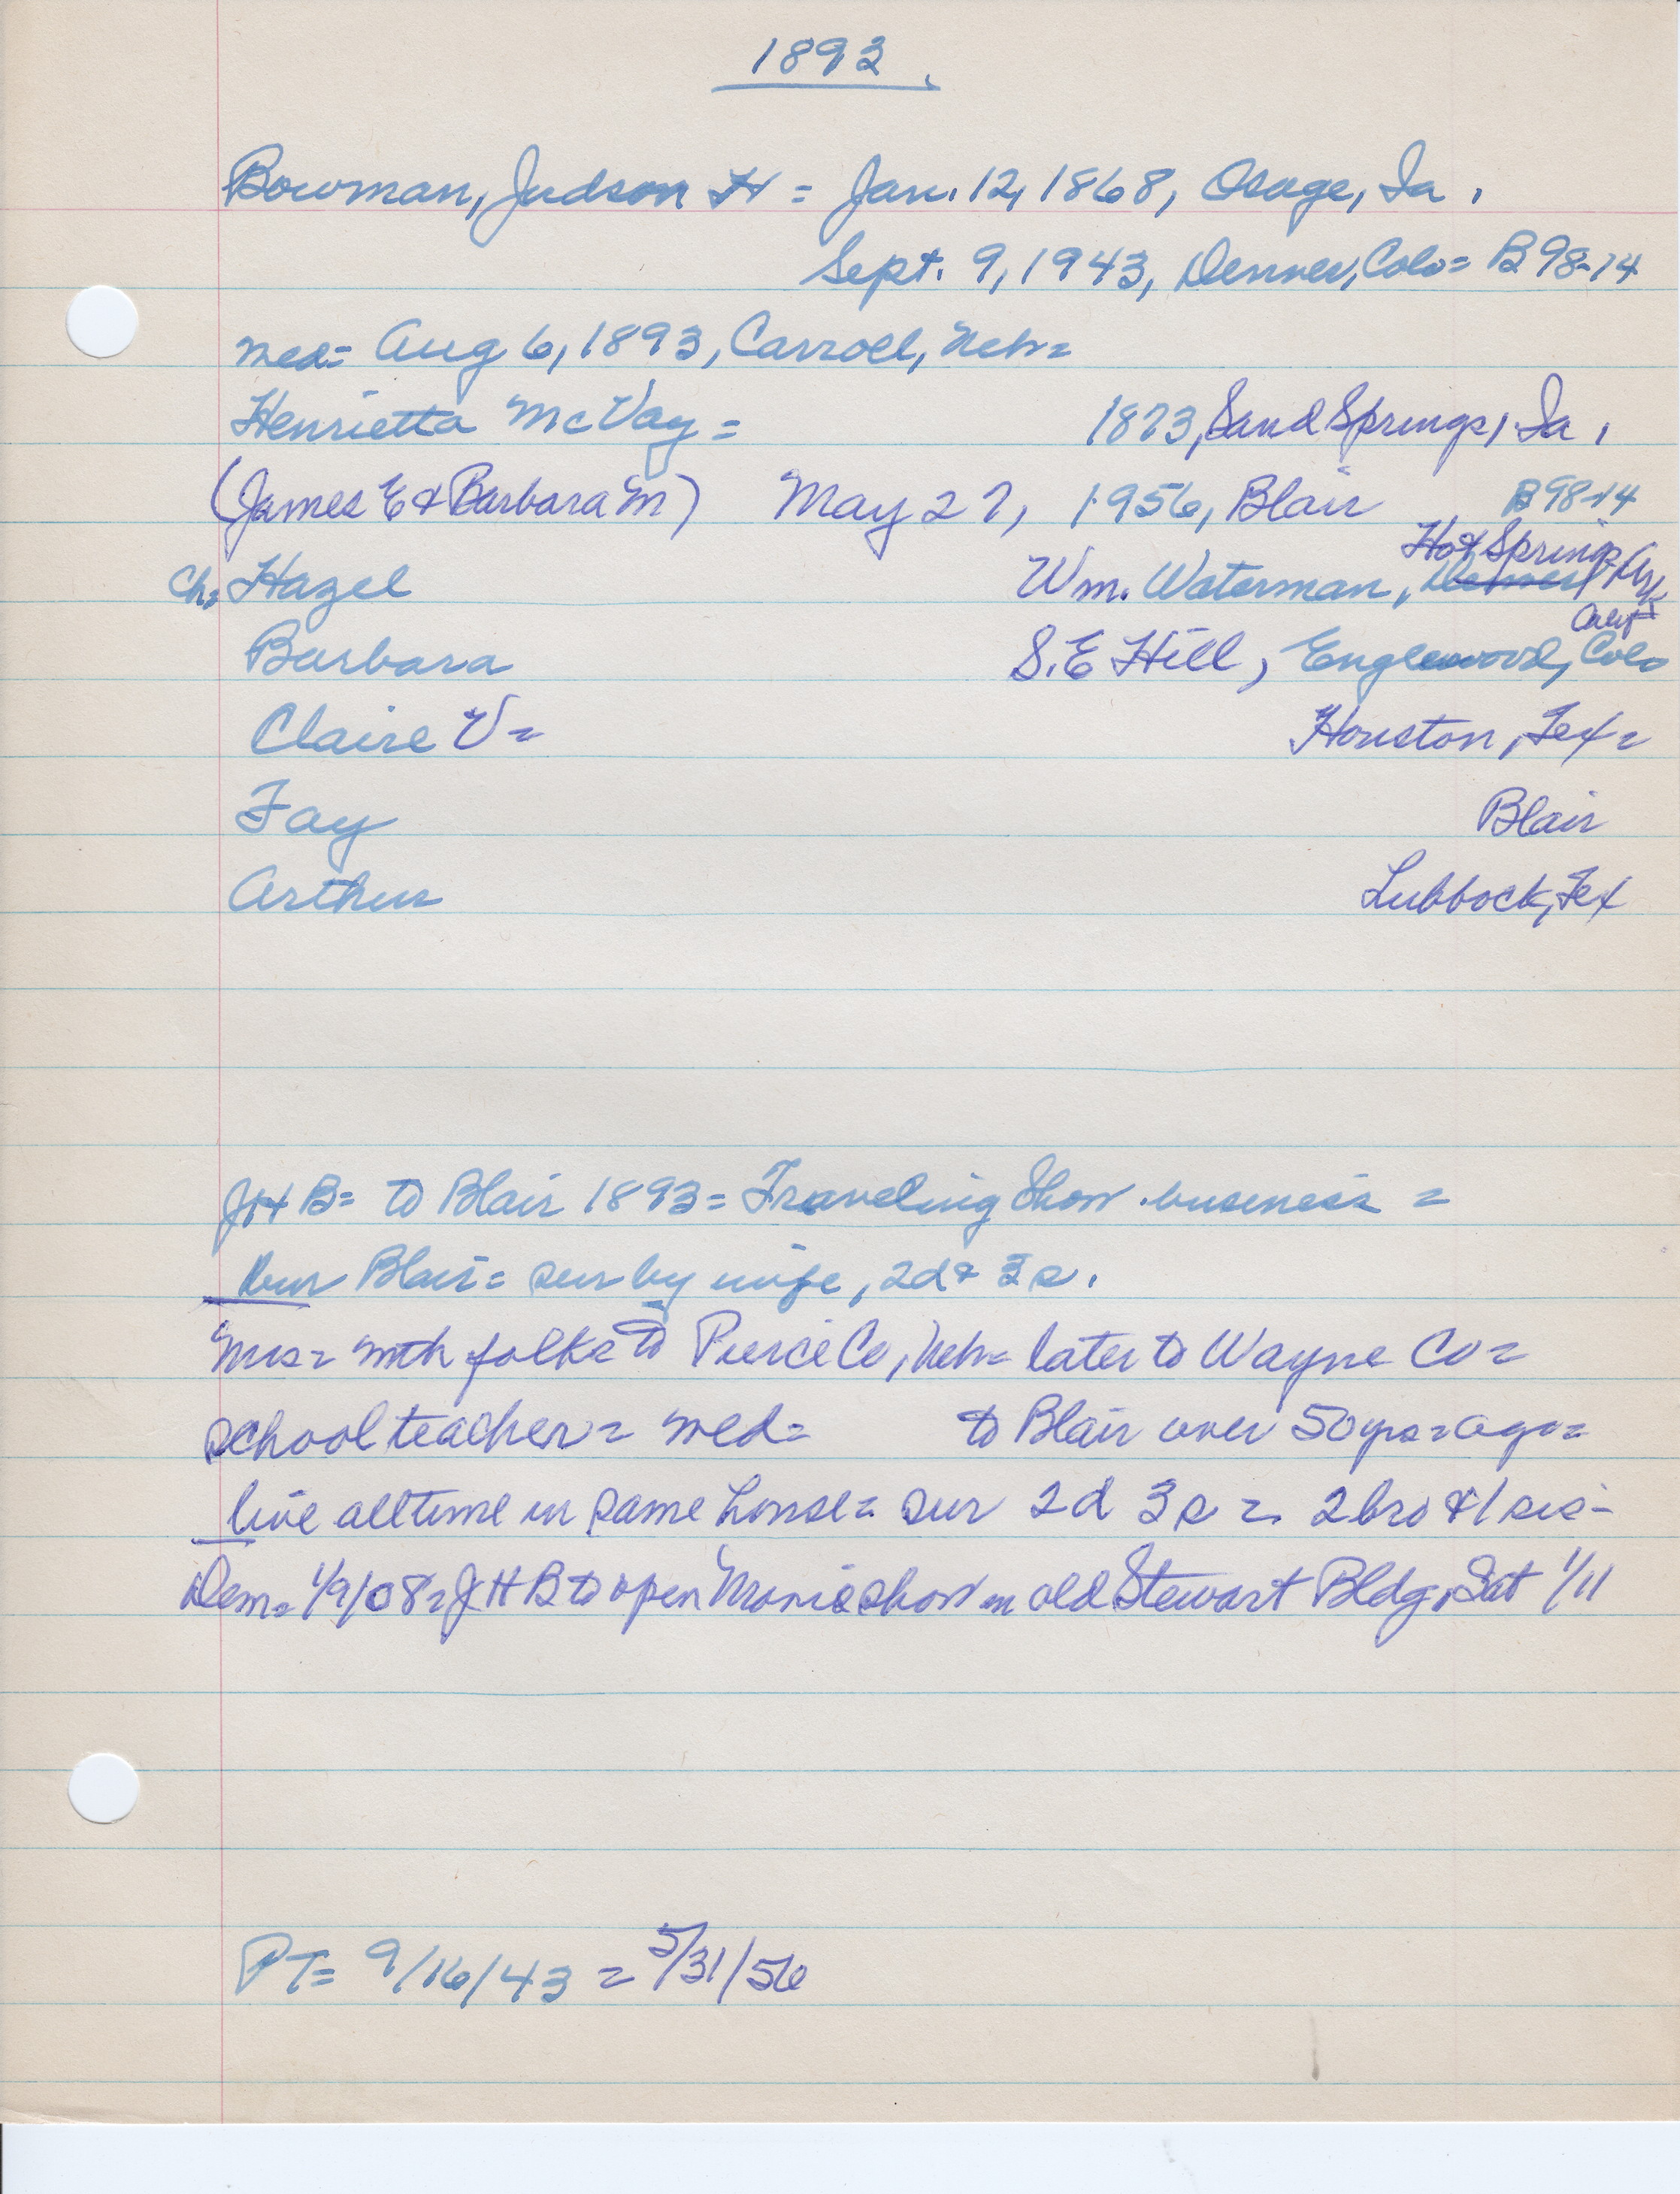 1893
Bowman, Judson H = Jan. 12, 1868, Osage, Ia.
Sept. 9, 1943, Denver, Colo = B 98-14
med= Aug 6, 1893, Carroll, Neb=
Henrietta McVay = 1873, Sand Springs, Ia.
(James E & Barbara M) May 27, 1956, Blair B 98-14
Hot Springs, Ark
Ch: Hazel Wm. Waterman, Denver
Calif
Barbara S.E Hill, Englewood, Colo
Claire V= Houston, Tex=
Fay Blair
Arthur Lubbock, Tex
JHB= to Blair 1893= Traveling Show business =
bur Blair= sur by wife, 2d & 3s.
Mrs= with folks to Pierce Co, Neb= later to Wayne Co=
school teacher= med= to Blair over 50 yrs= ago=
live all time in same house= sur 2d 3s = 2 bro & 1 sis-
Dem= 1/9/08= JHB to open Movie show in old Stewart Bldg, Sat 1/11
PT= 9/16/43 = 5/31/56